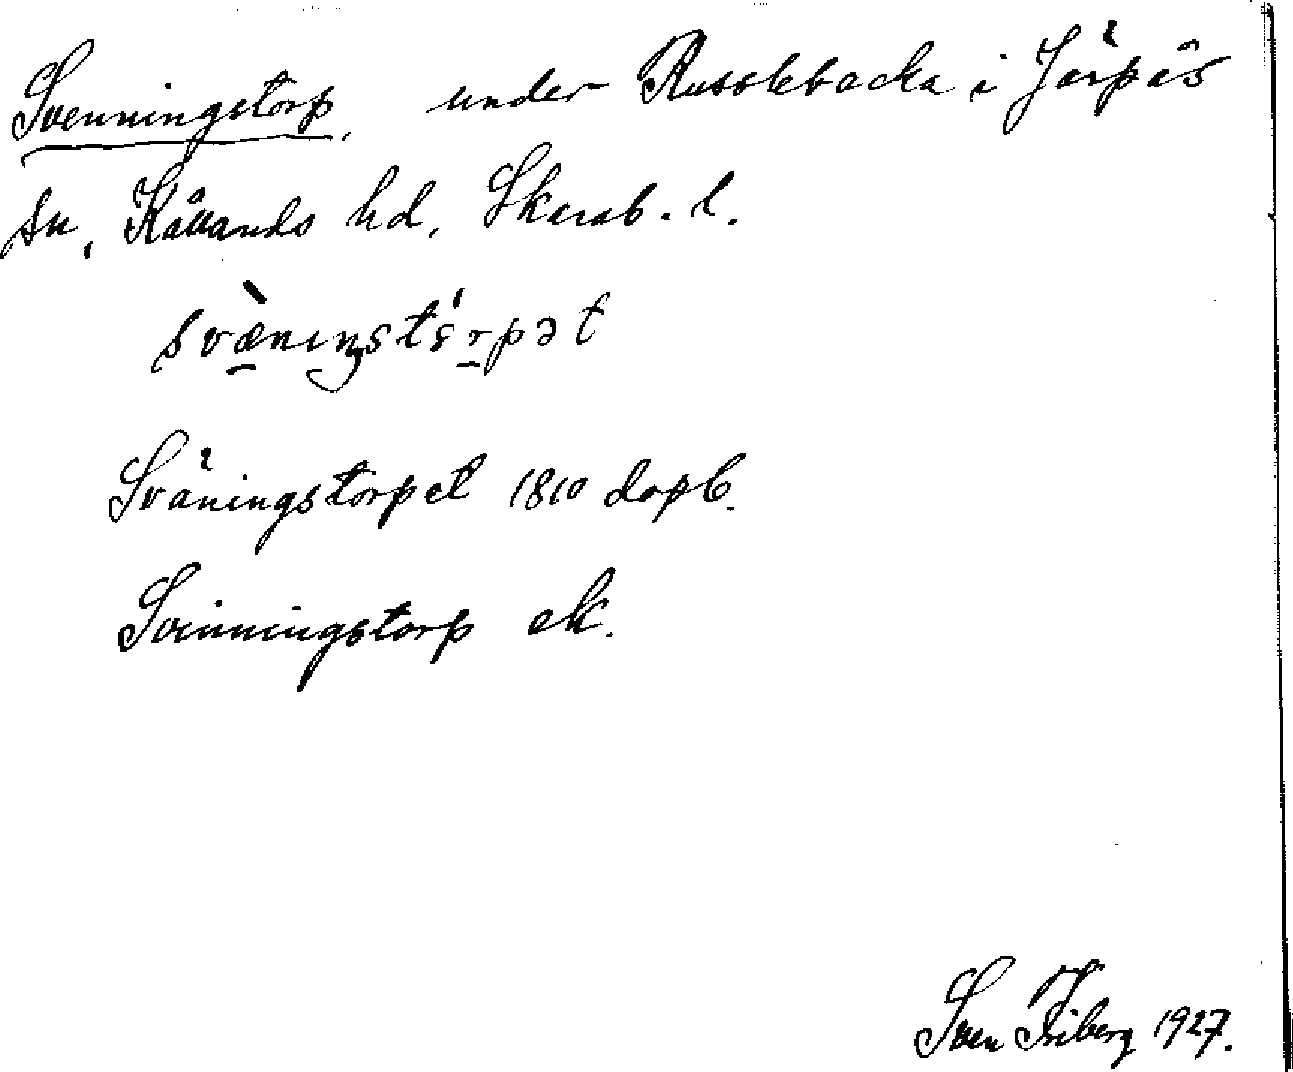 Svenningstorp, under Russlebacka i Järpås
sn, Kållands hd, Skarab. l.
svæ̀niŋstɔ́rpət
Sväningstorpet 1810 dopb.
Svinningstorp ek.
Sven Friberg 1927.